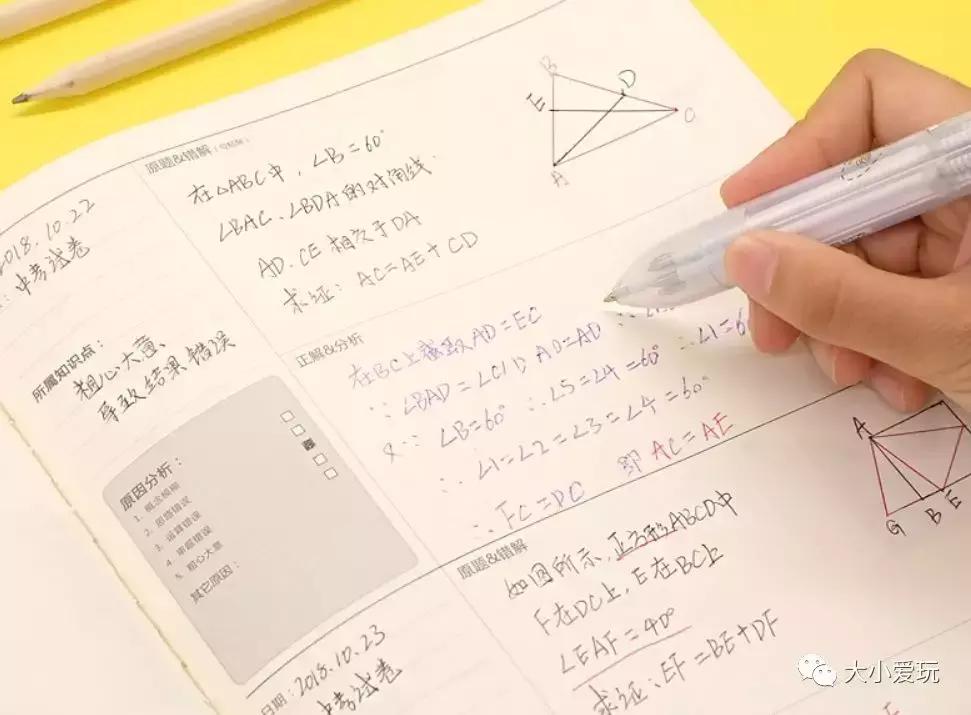 2018.10.22
中考试卷
所属知识点：
粗心大意、
导致结果错误
原因分析：
1. 概念模糊
2. 思路错误
3. 运算错误
4. 审题错误
5. 粗心大意
其它原因：
日期：2018.10.23
中考试卷
原题&错解
在△ABC中，∠B=60°
∠BAC、∠BDA的对角线
AD、CE相交于DA
求证：AC=AE+CD
B
D
E
C
A
正解&分析
在BC上截取AD=EC
∵∠BAD=∠CID AD=AD
又∵∠B=60° ∴∠5=∠4=60° ∴∠1=6
∴∠1=∠2=∠3=∠4=60°
∴FC=DC 即AC=AE
原题&错解
如图所示、正方形ABCD中
F在DC上，E在BC上
∠EAF=40°
求证：EF=BE+DF
A
G
B
E
大小爱玩